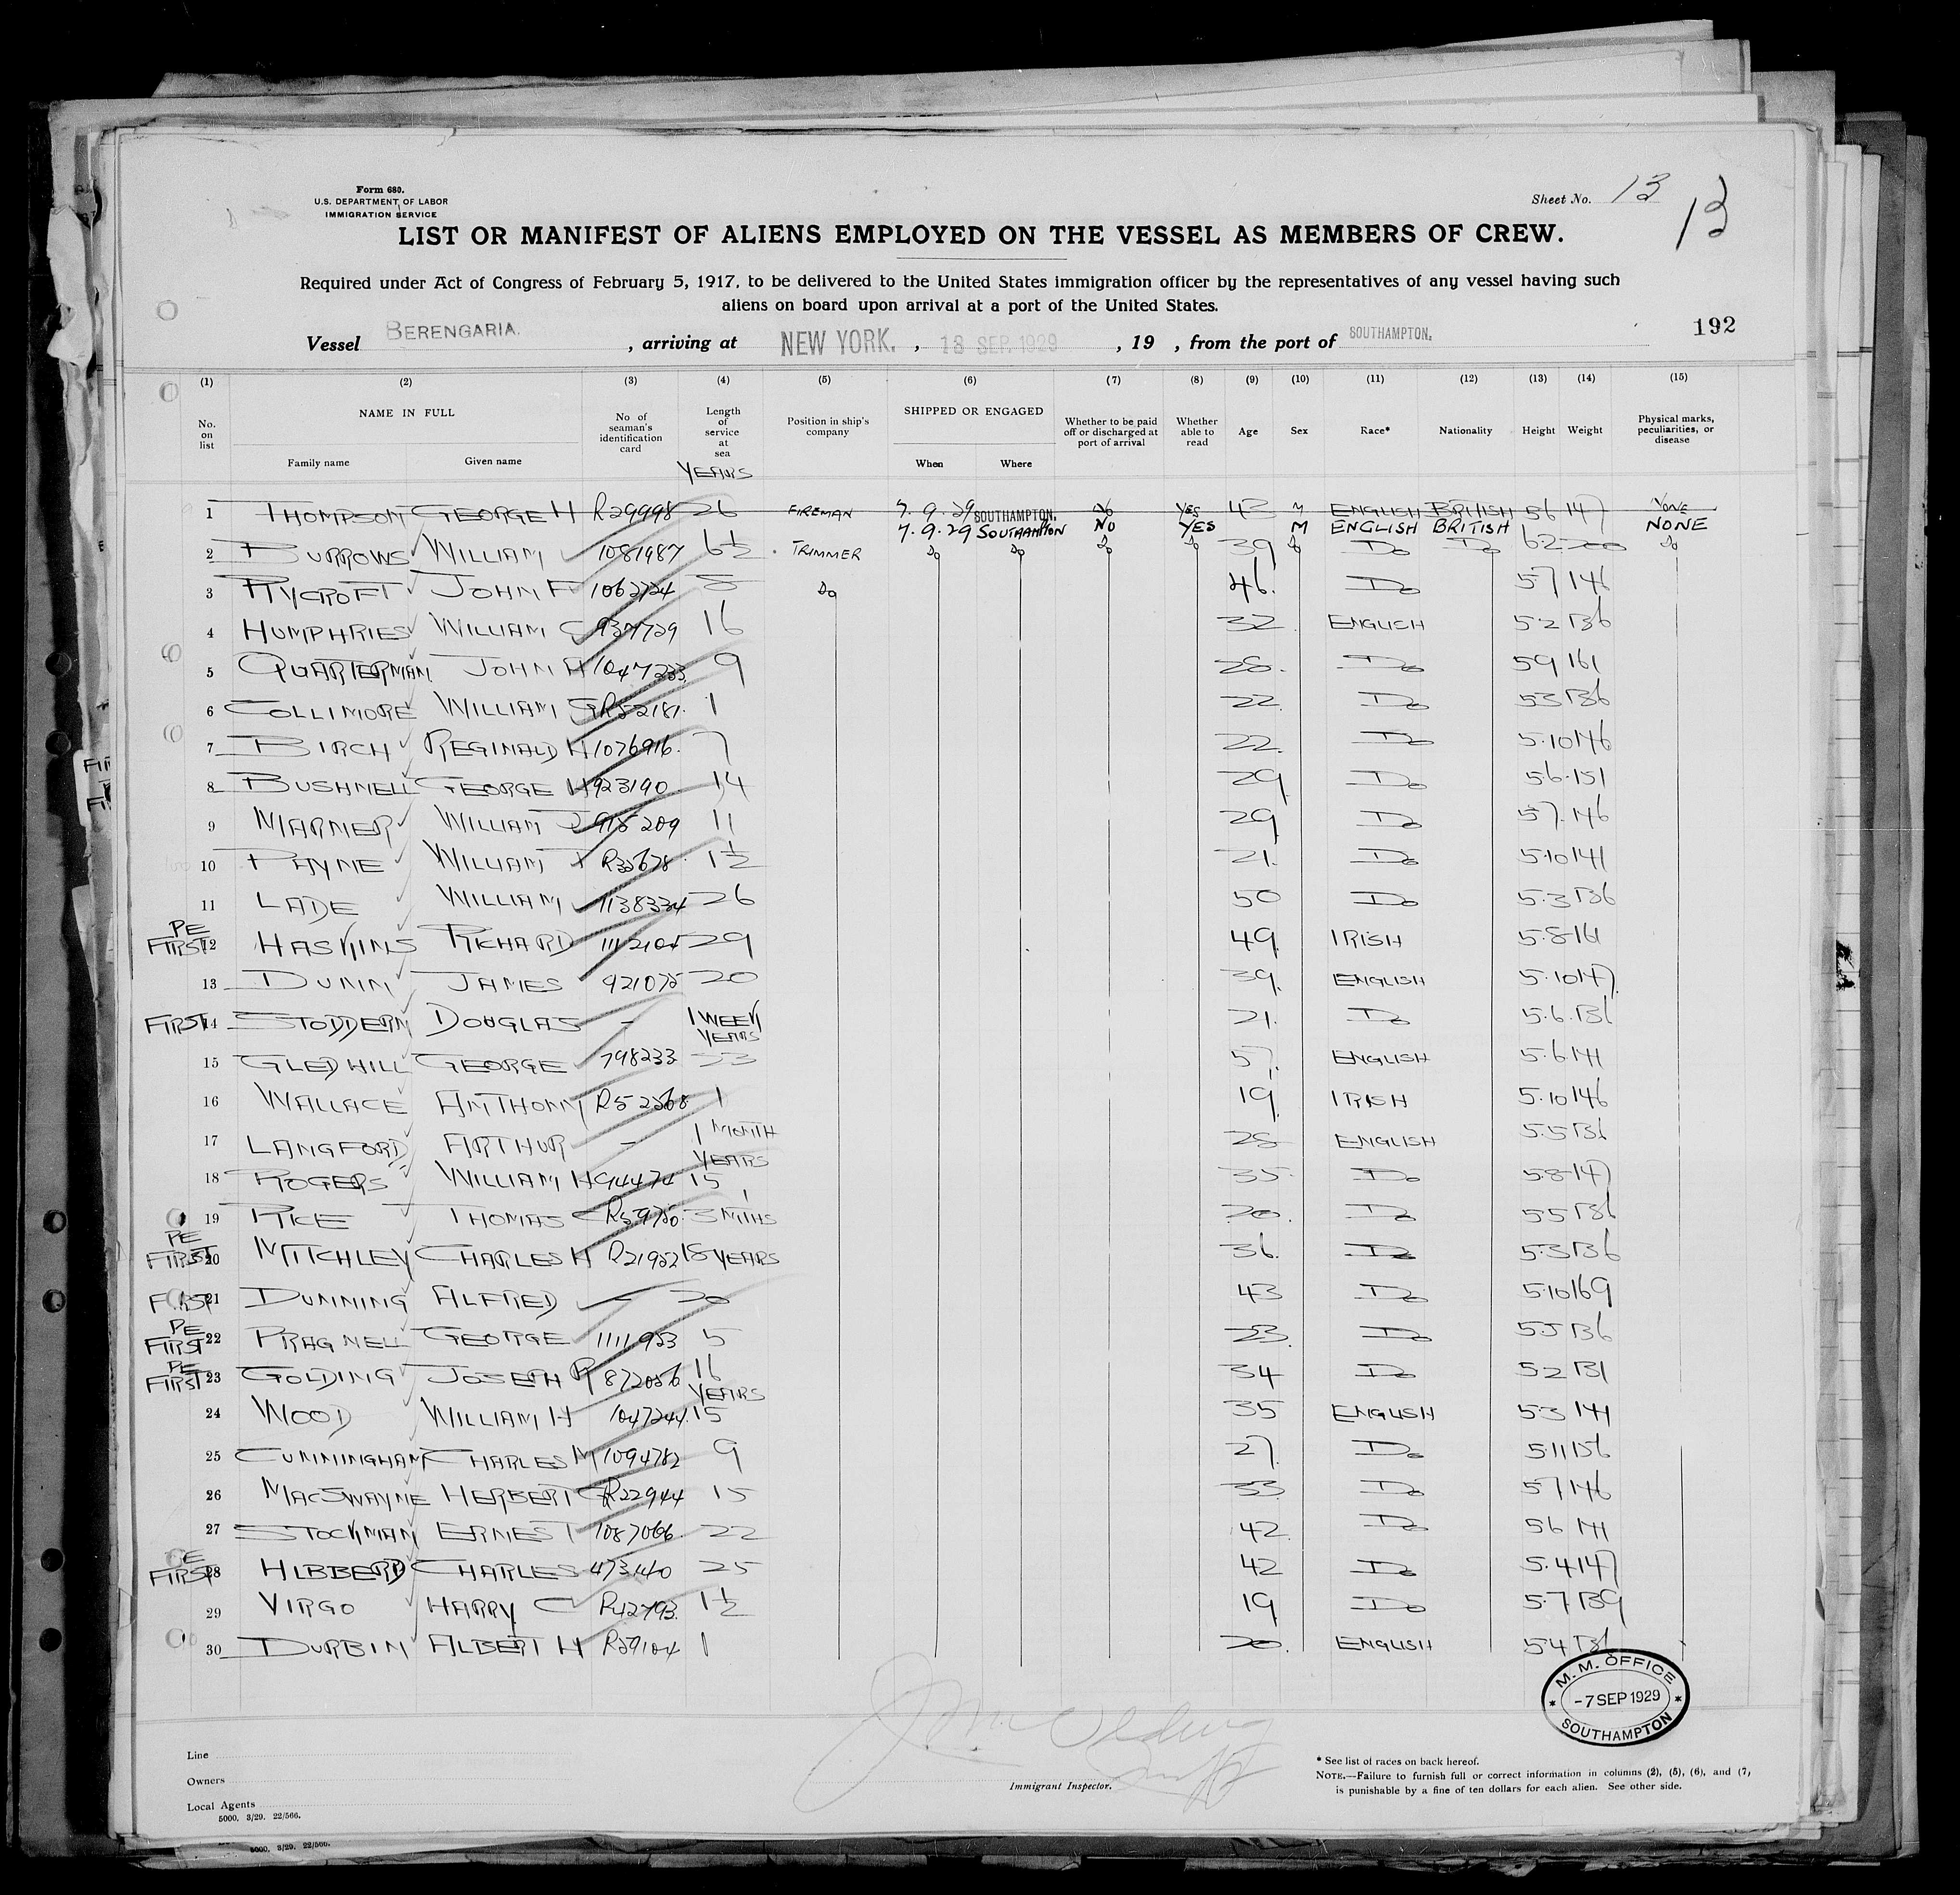 Form 680.
U.S. DEPARTMENT OF LABOR
IMMIGRATION SERVICE
Sheet No. 13
13
LIST OR MANIFEST OF ALIENS EMPLOYED ON THE VESSEL AS MEMBERS OF CREW.
Required under Act of Congress of February 5, 1917, to be delivered to the United States immigration officer by the representatives of any vessel having such
aliens on board upon arrival at a port of the United States.
192
Vessel BERENGARIA. , arriving at NEW YORK. , 13 SEP. 1929 , 19 , from the port of SOUTHAMPTON.
(1) (2) (3) (4) (5) (6) (7) (8) (9) (10) (11) (12) (13) (14) (15)
No. on list NAME IN FULL Family name Given name No of seaman's identification card Length of service at sea Position in ship's company SHIPPED OR ENGAGED When Where Whether to be paid off or discharged at port of arrival Whether able to read Age Sex Race* Nationality Height Weight Physical marks, peculiarities, or disease
YEARS
1 THOMPSON GEORGE H R29998 26 FIREMAN 7.9.29 SOUTHAMPTON. No YES 43 M ENGLISH BRITISH 56 147 NONE
7.9.29 SOUTHAMPTON NO YES M ENGLISH BRITISH NONE
2 BURROWS WILLIAM 1081987 6½ TRIMMER Do Do Do Do 39 Do Do Do 6.2 200 Do
3 RYCROFT JOHN F 1062724 8 Do 46. Do 57 146
4 HUMPHRIES WILLIAM C 937729 16 32 ENGLISH 52 136
5 QUARTERMAN JOHN H 1047233 9 28. Do 59 161
6 COLLIMORE WILLIAM G R52181. 1 22 Do 53 136
7 BIRCH REGINALD H 1076916. 7 22. Do 5.10 146
8 BUSHNELL GEORGE H 923190. 14 29 Do 56.151
9 MARNER WILLIAM J 915209 11 29 Do 57.146
10 PAYNE WILLIAM R35678 1½ 21. Do 5.10 141
11 LADE WILLIAM 1138334 26 50 Do 5.3 136
PE
FIRST 12 HASKINS RICHARD 29 49 IRISH 5.8 161
13 DUNN JAMES 921075 20 39. ENGLISH 5.10 147
FIRST 14 STODDERN DOUGLAS - 1 WEEK 21. Do 5.6.131
YEARS
15 GLEDHILL GEORGE 798233 33 57. ENGLISH 5.6 141
16 WALLACE ANTHONY R52568 1 19 IRISH 5.10 146
17 LANGFORD ARTHUR - 1 MONTH 28 ENGLISH 5.5 136
YEARS
18 ROGERS WILLIAM H 94474 15 35. Do 5.8 147
19 RICE THOMAS C R59750. 3 MTHS 20. Do 55 136
PE
FIRST 20 MITCHLEY CHARLES H R21952 18 YEARS 36. Do 5.3 136
FIRST 21 DUNNING ALFRED 20 43 Do 5.10 169
PE
FIRST 22 PRAGNELL GEORGE 1111953 5 23. Do 5.5 136
PE
FIRST 23 GOLDING JOSEPH R 872056 16 34 Do 52 131
YEARS
24 WOOD WILLIAM H 1047244. 15 35 ENGLISH 5.3 141
25 CUNNINGHAM CHARLES M 1094782 9 27. Do 5.11 156
26 MACSWAYNE HERBERT G R22944 15 33 Do 57 146
27 STOCKMAN ERNEST 1087066. 22 42. Do 56 141
PE
FIRST 28 HIBBERD CHARLES 473140 25 42 Do 5.4 147
29 VIRGO HARRY C R42793. 1½ 19 Do 5.7 139
30 DURBIN ALBERT H R29104 1 20. ENGLISH 54 136
M. M. OFFICE
-7 SEP 1929
SOUTHAMPTON
Line
Owners
Local Agents
5000. 3/29. 22/566.
Immigrant Inspector.
* See list of races on back hereof.
NOTE.—Failure to furnish full or correct information in columns (2), (5), (6), and (7,
is punishable by a fine of ten dollars for each alien. See other side.
5000. 3/29. 22/566.